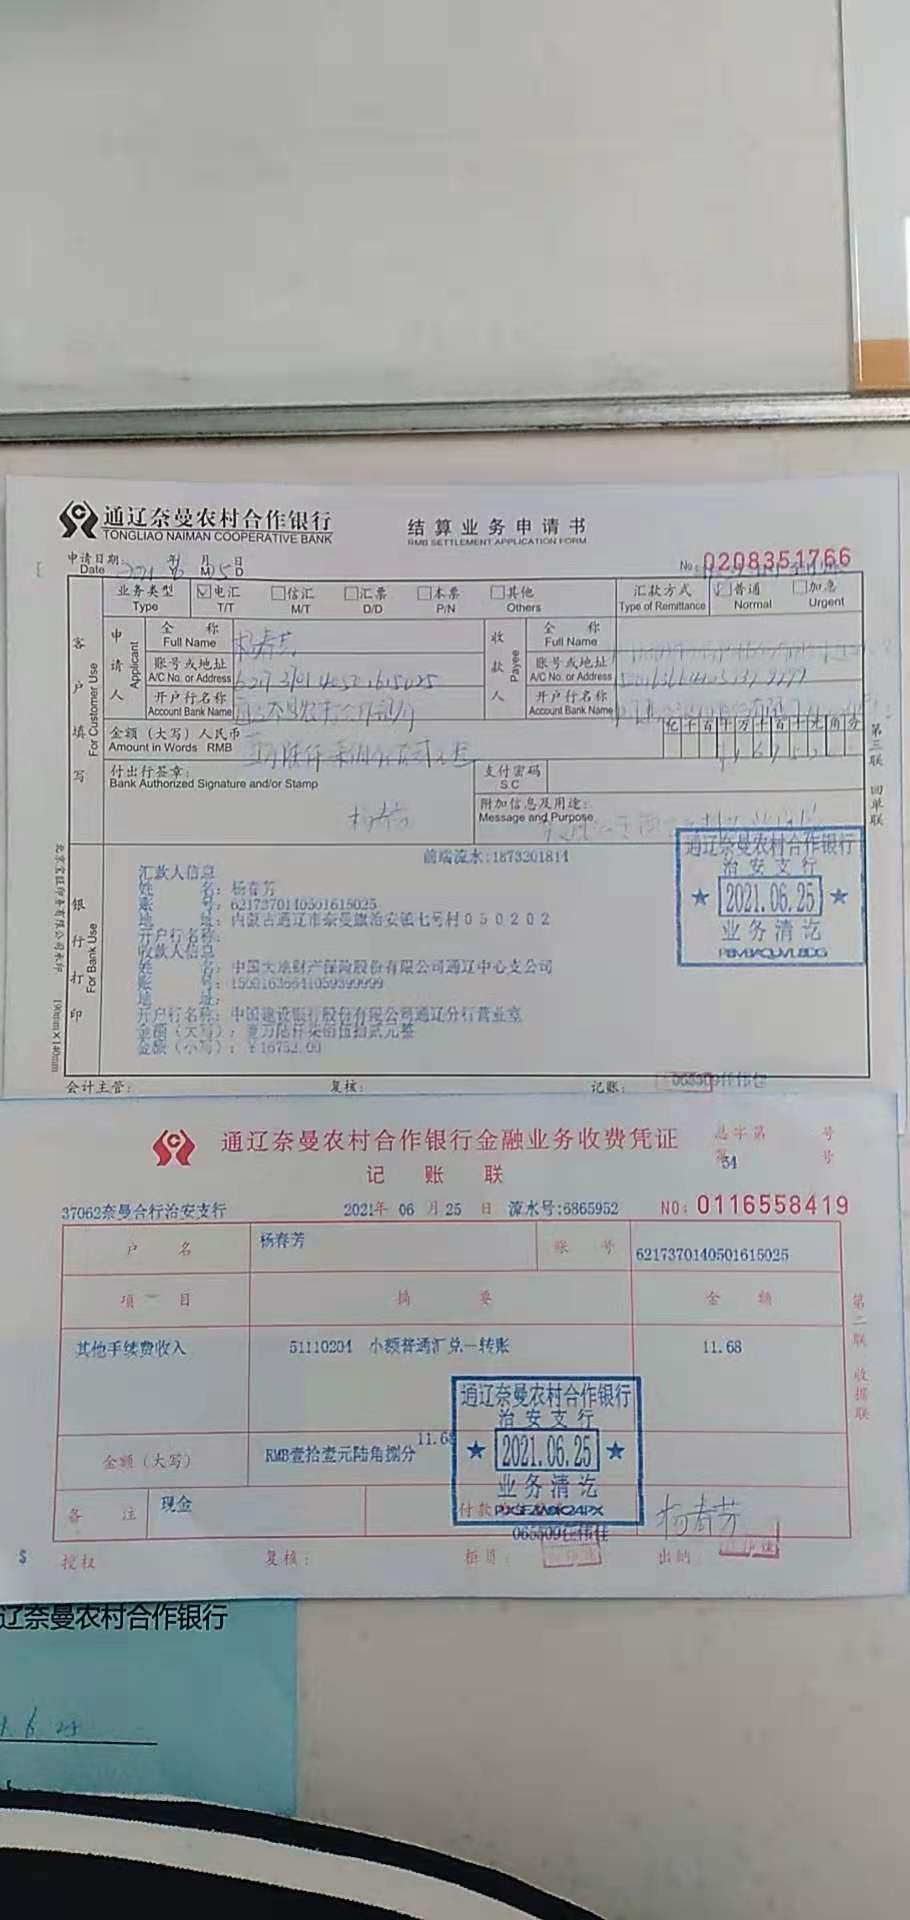 通辽奈曼农村合作银行
TONGLIAO NAIMAN COOPERATIVE BANK
结算业务申请书
RMB SETTLEMENT APPLICATION FORM
申请日期: 年 月 日
Date M D
No: 0208351766
业务类型 电汇 信汇 汇票 本票 其他 汇款方式 普通 加急
Type T/T M/T D/D P/N Others Type of Remittance Normal Urgent
客户填写
For Customer Use
申请人
Applicant
全称 杨春芳
Full Name
账号或地址
A/C No. or Address
开户行名称
Account Bank Name
收款人
Payee
全称
Full Name
账号或地址
A/C No. or Address
开户行名称
Account Bank Name
金额(大写)人民币
Amount in Words RMB
亿千百十万千百十元角分
付出行签章:
Bank Authorized Signature and/or Stamp
支付密码
S C
附加信息及用途:
Message and Purpose
第三联 回单联
银行打印
For Bank Use
前端流水:1873201814
汇款人信息
姓名: 杨春芳
账号: 6217370140501615025
地址: 内蒙古通辽市奈曼旗治安镇七号村050202
开户行名称:
收款人信息
姓名: 中国大地财产保险股份有限公司通辽中心支公司
账号:
地址:
开户行名称: 中国建设银行股份有限公司通辽分行营业室
金额(大写): 壹万陆仟柒佰伍拾贰元整
金额(小写): ¥16752.00
通辽奈曼农村合作银行
治安支行
2021.06.25
业务清讫
190mm×140mm
会计主管: 复核: 记账:
通辽奈曼农村合作银行金融业务收费凭证
记账联
总字第 号
第 54 号
37062奈曼合行治安支行 2021年 06 月 25 日 流水号:6865952 NO: 0116558419
户名 杨春芳 账号 6217370140501615025
项目 摘要 金额
其他手续费收入 51110204 小额普通汇兑-转账 11.68
金额(大写) RMB壹拾壹元陆角捌分 11.68
备注 现金 付款
第二联 收据联
通辽奈曼农村合作银行
治安支行
2021.06.25
业务清讫
杨春芳
授权 复核: 柜员: 出纳:
辽奈曼农村合作银行